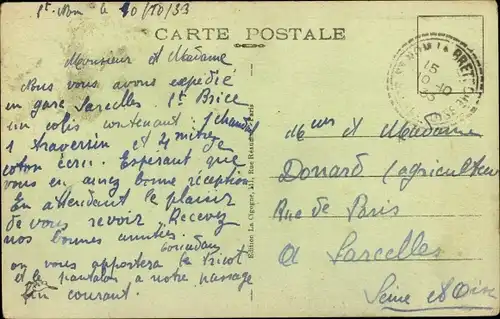 St-Nom le 10/10/33
CARTE POSTALE
Monsieur et Madame
Nous vous avons expédié
en gare Sarcelles St Brice
un colis contenant : 1
1 traversin et 2 mitres de
coton écru. Esperant que
vous en aurez bonne réception
En attendant le plaisir
de vous revoir Recevez
nos bonnes amitiés.
on vous apportera le tricot
et le pantalon a notre passage
fin courant.
Edition La Cigogne, 211, Rue
ST NOM LA BRETECHE
15
10 -10
33
SEINE
Mons et Madame
Donard (agriculteur
Rue de Paris
a Sarcelles
Seine et Oise